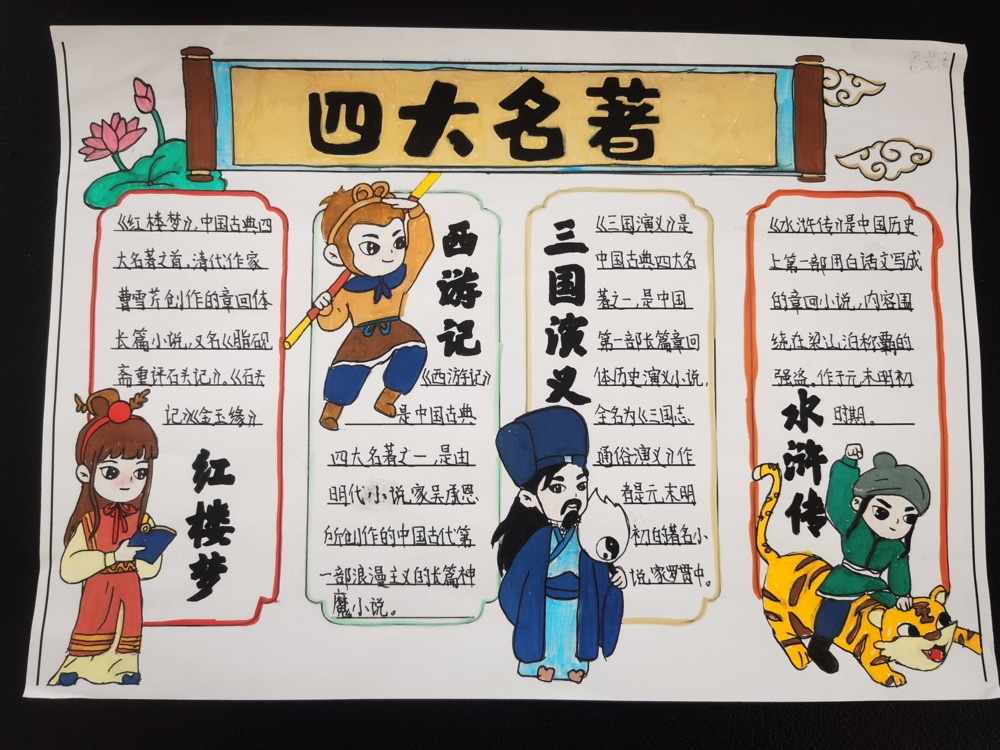 四大名著
《红楼梦》，中国古典四
大名著之首，清代作家
曹雪芹创作的章回体
长篇小说，又名《脂砚
斋重评石头记》、《石头
记》《金玉缘》
红楼梦
西游记
《西游记》
是中国古典
四大名著之一，是由
明代小说家吴承恩
所创作的中国古代第
一部浪漫主义的长篇神
魔小说。
三国演义
《三国演义》是
中国古典四大名
著之一，是中国
第一部长篇章回
体历史演义小说，
全名为《三国志
通俗演义》作
者是元末明
初的著名小
说家罗贯中。
《水浒传》是中国历史
上第一部用白话文写成
的章回小说，内容围
绕在梁山泊称霸的
强盗。作于元末明初
时期。
水浒传